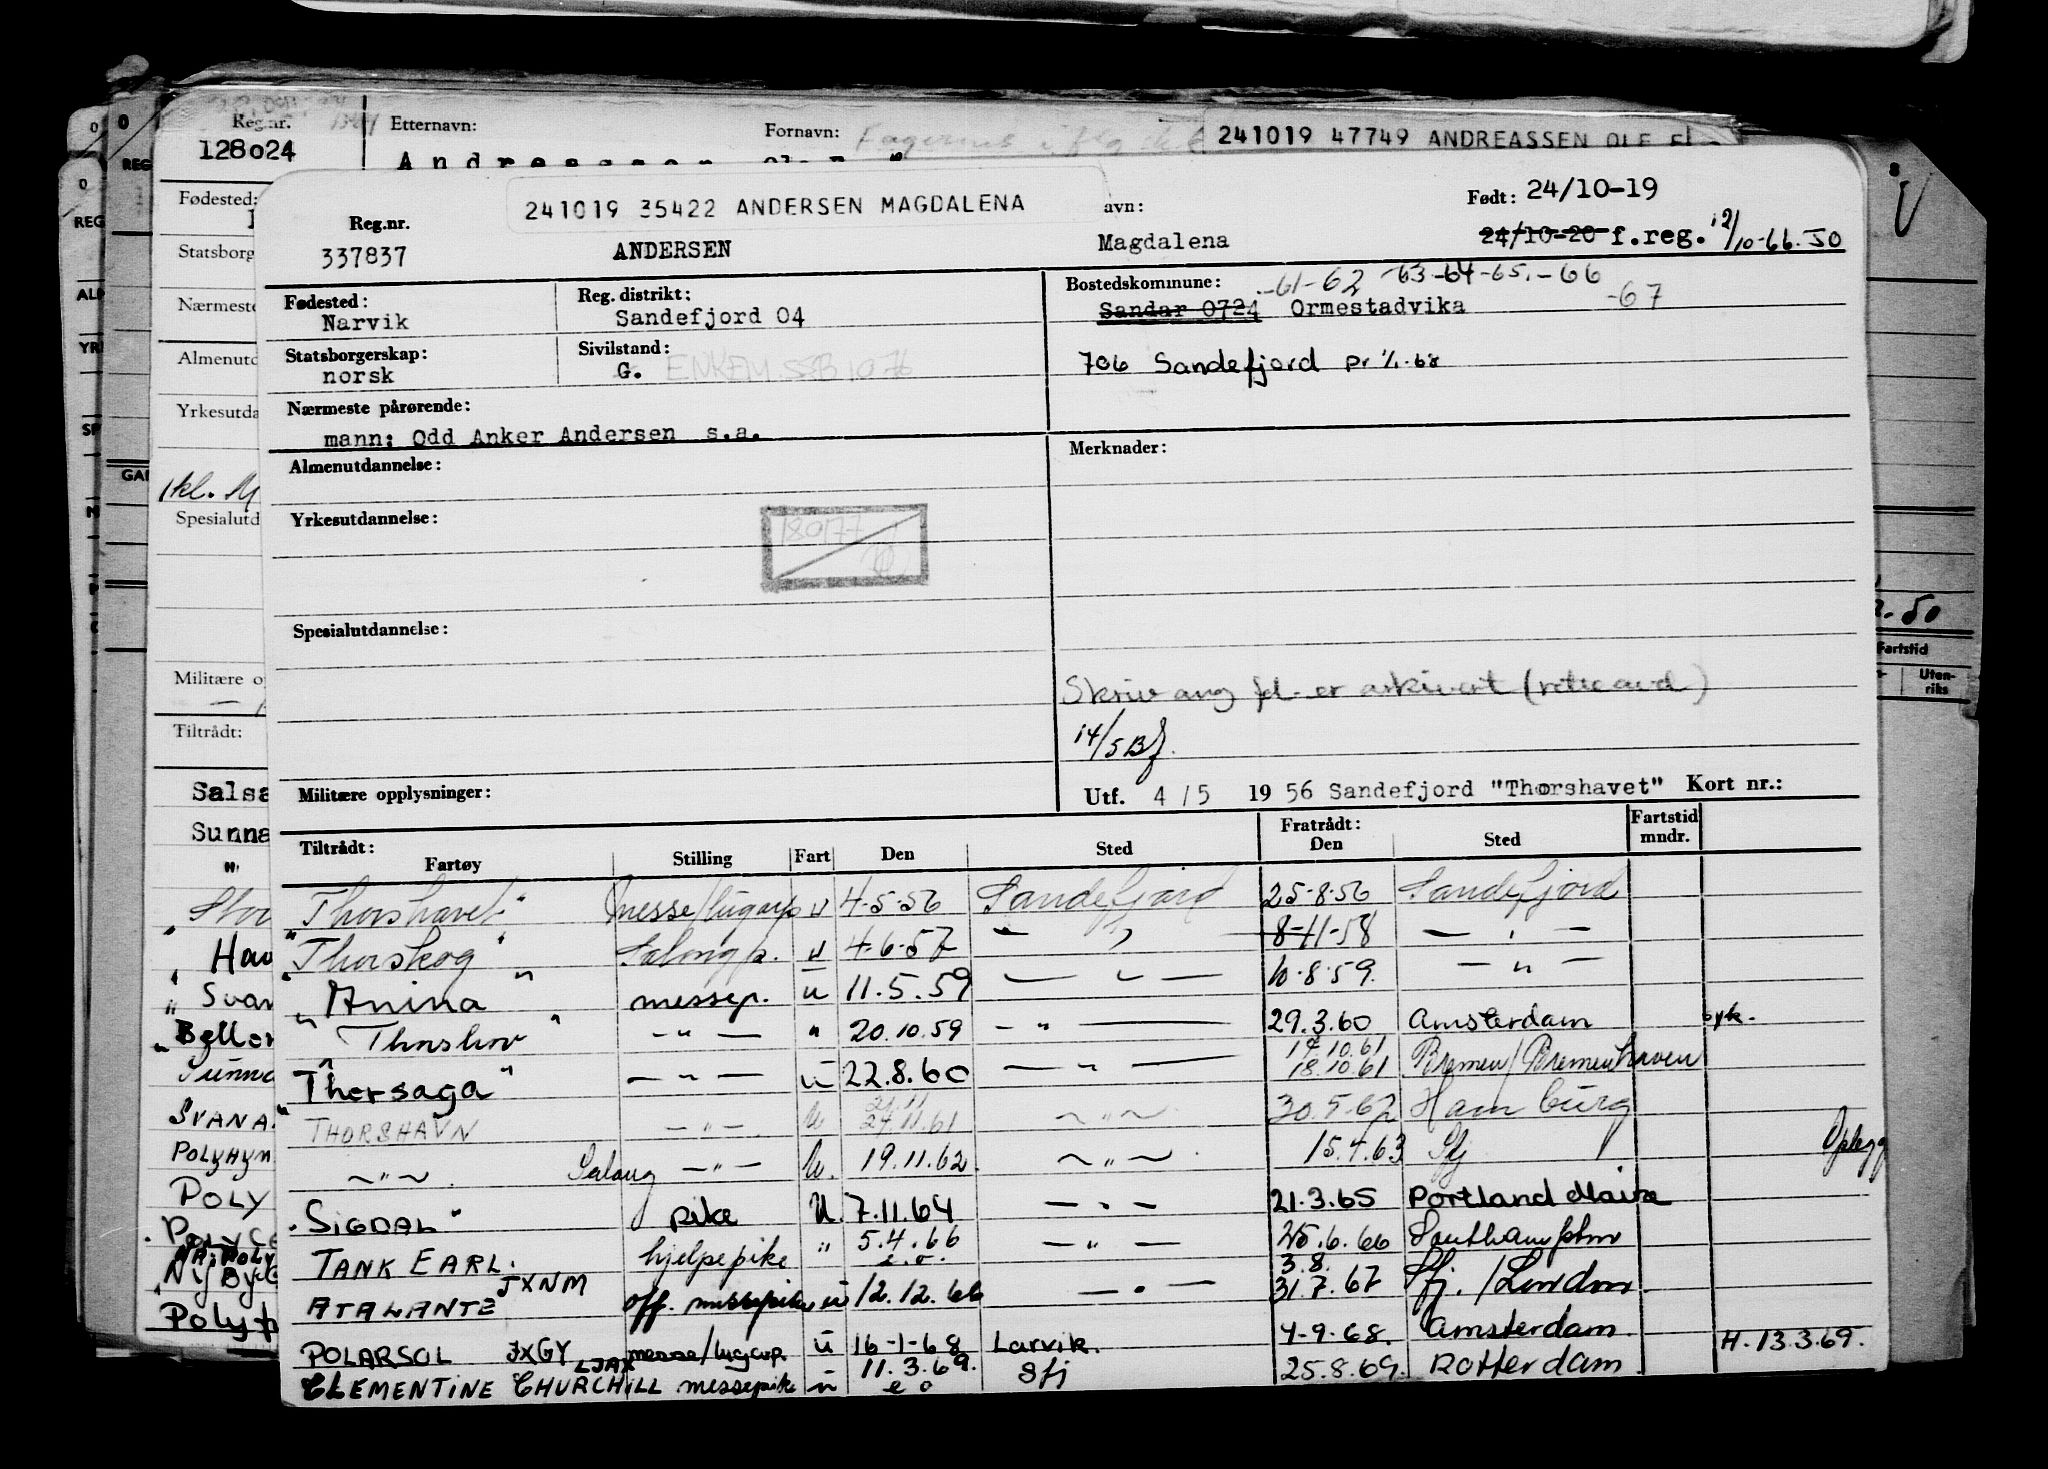 Reg.nr.
128024
Etternavn:
Fornavn:
241019 47749 ANDREASSEN OLE
Fødested:
Statsborg
Nærmeste
Almenutd
Yrkesutda
Spesialutd
Militære op
Tiltrådt:
Salsa
Sunna
Hav
Svan
Beller
Sunna
SVANA
POLYHYM
POLY
POLYCE
Fartstid
Uten-
riks
241019 35422 ANDERSEN MAGDALENA
Reg.nr.
337837
ANDERSEN
avn:
Magdalena
Født: 24/10-19
24/10-20 f.reg. 12/10-66. JO
Fødested:
Narvik
Reg. distrikt:
Sandefjord 04
Bostedskommune: -61-62 -63-64-65.-66
-67
Sandar 0724 Ormestadvika
Statsborgerskap:
norsk
Sivilstand:
G. ENKEM. SSB 1076
706 Sandefjord pr 1/1-68
Nærmeste pårørende:
mann: Odd Anker Andersen s.a.
Almenutdannelse:
Merknader:
Yrkesutdannelse:
180177
Spesialutdannelse:
Skriv ang fd. er arkivert
14/5 BJ.
Militære opplysninger:
Utf. 4 / 5 19 56 Sandefjord "Thorshavet" Kort nr.:
Tiltrådt:
Fartøy Stilling Fart Den Sted Fratrådt: Den Sted Fartstid mndr.
"Thorshavet" messe/lugarp u 4-5-56 Sandefjord 25-8-56 Sandefjord
"Thorskog" Salongp. u 4-6-57 — " — 8-11-58 — " —
"Anina" messep. u 11.5.59 — " — 10-8-59. — " —
"Thorshov" — " — " 20.10.59 — " — 29.3.60 Amsterdam syk.
"Thorsaga" — " — u 22.8.60 — " — 17.10.61 18.10.61 Bremen/Bremenhaven
"THORSHAVN — " — u 21.11 24.11.61 — " — 30.5.62 Hamburg
— " — Salong — " — u. 19.11.62. — " — 15.4.63 Sfj Oplegg
"SIGDAL" pike u. 7.11.64 — " — 21.3.65 Portland Maine
TANK EARL. hjelpepike " 5.4.66 e.o. — " — 25.6.66 Southampton
ATALANTE JXNM off. messepike u 12.12.66 — " — 3.8. 31.7.67 Sfj. / London
POLARSOL JXGY messe/lugarp. u 16-1-68 Larvik. 4-9-68. Amsterdam
CLEMENTINE CHURCHILL LJAX messepike u 11.3.69. eo Sfj 25.8.69. Rotterdam H. 13.3.69.